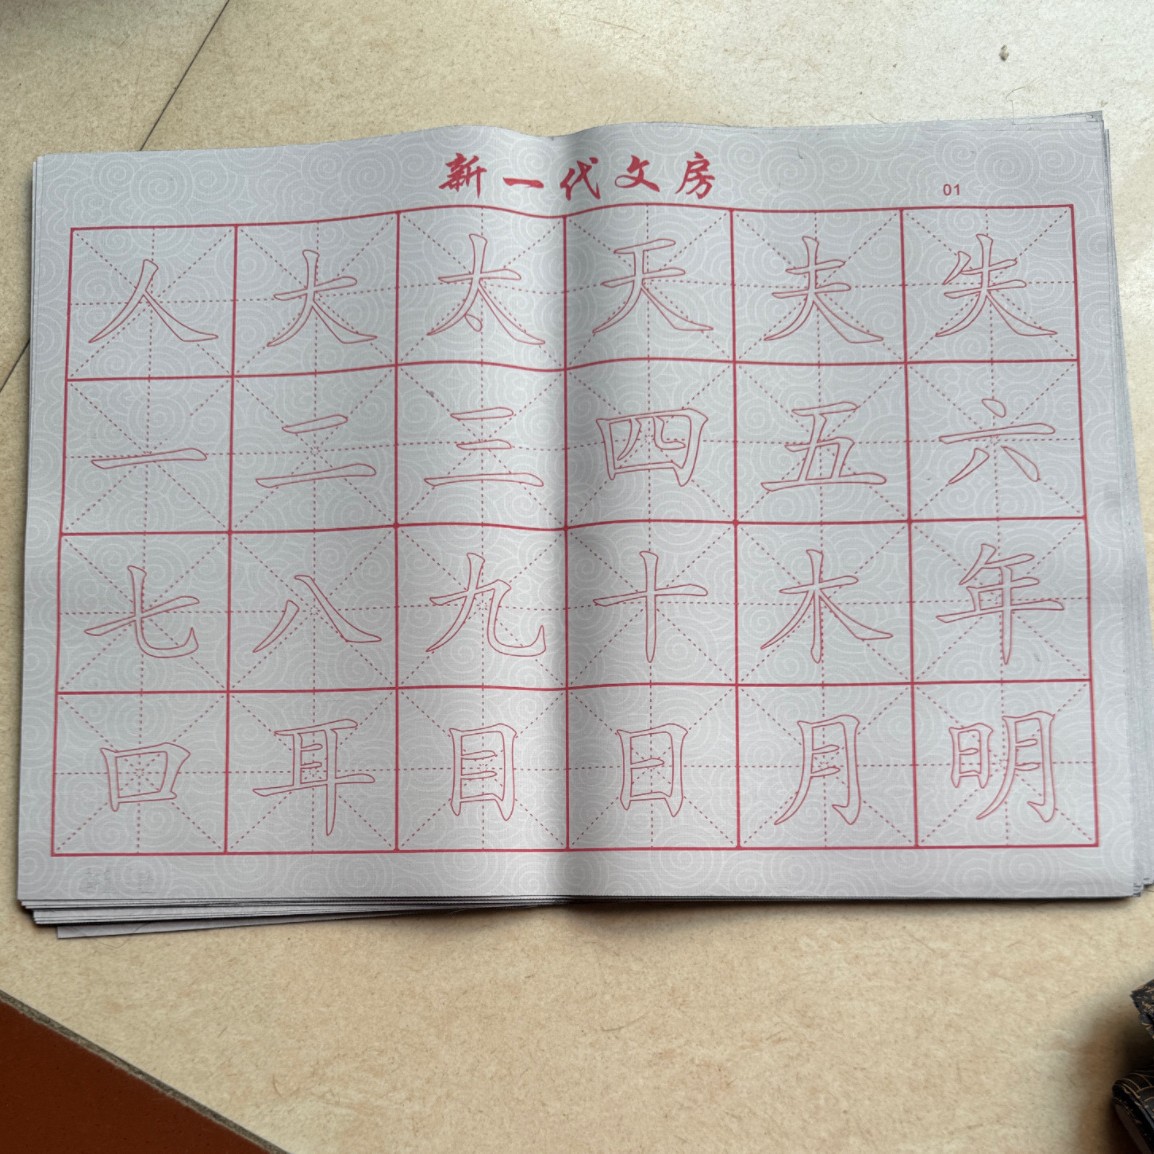 新一代文房
01
人大太天夫失
一二三四五六
七八九十木年
口耳目日月明